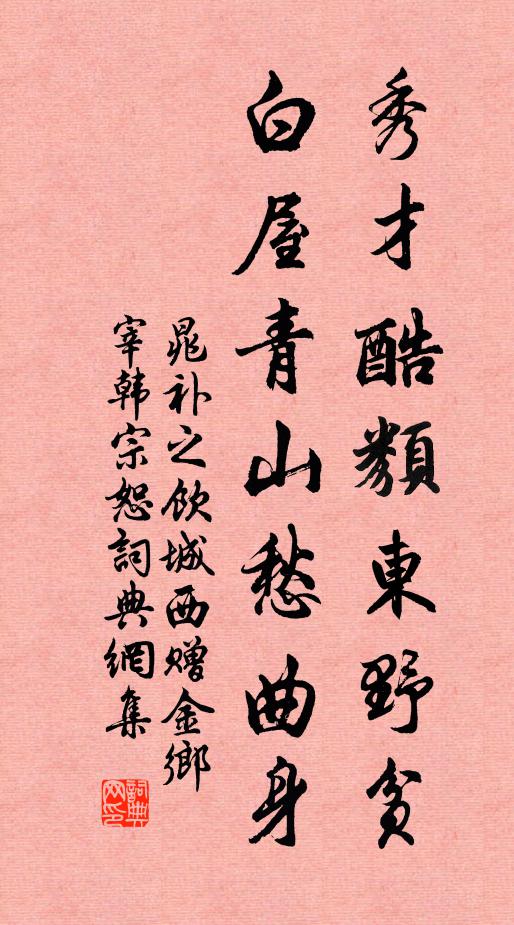 秀才酷類東野貧
白屋青山愁曲身
晁补之飲城西贈金鄉
宰韩宗恕詞典網集
詞典網印